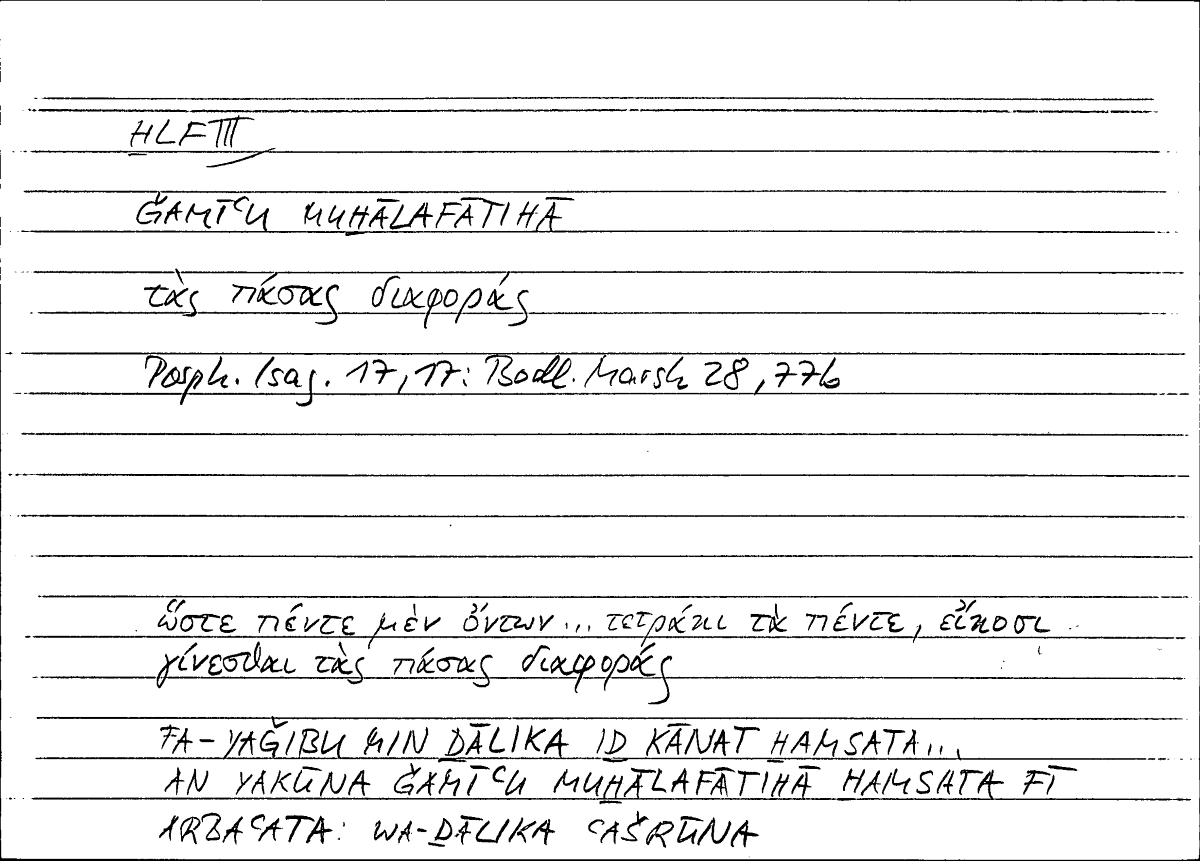 H̱LF III
ǦAMĪʿU MUH̱ĀLAFĀTIHĀ
τὰς πάσας διαφοράς
Porph. Isag. 17,17: Bodl. Marsh 28,77b
ὥστε πέντε μὲν ὄντων... τετράκι τὰ πέντε, εἴκοσι
γίνεσθαι τὰς πάσας διαφοράς
FA-YAǦIBU MIN ḎĀLIKA IḎ KĀNAT H̱AMSATA...
AN YAKŪNA ǦAMĪʿU MUH̱ĀLAFĀTIHĀ H̱AMSATA FĪ
ARBAʿATA: WA-ḎĀLIKA ʿAŠRŪNA